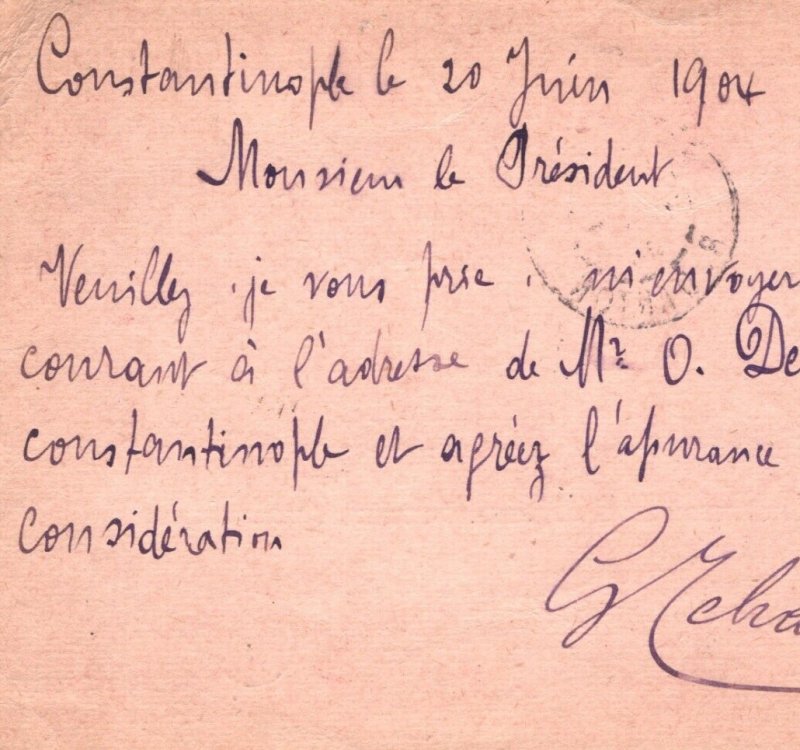 Constantinople le 20 Juin 1904
Monsieur le Président
Veuillez, je vous prie, m'envoyer
courant à l'adresse de Mr O. De
constantinople et agréez l'assurance
Considération